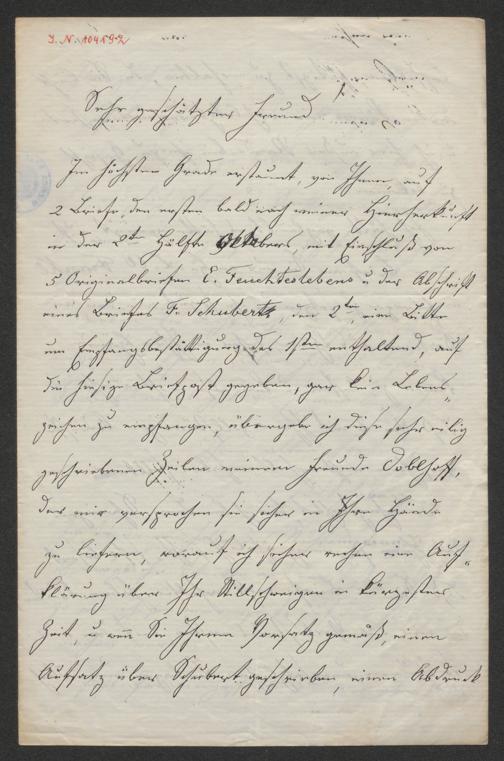 I. N. 10459-2
Sehr geschätzter Freund
Im höchsten Grade erstaunt, von Ihnen, auf
2 Briefe, den ersten bald nach meiner Hierherkunft
in der 2ten Hälfte Oktobers, mit Einschluß von
5 Originalbriefen E. Feuchterslebens u der Abschrift
eines Briefes F. Schuberts, den 2ten, eine Bitte
um Empfangsbestättigung des 1sten enthaltend, auf
die hiesige Briefpost gegeben, gar kein Lebens-
zeichen zu empfangen, übergebe ich diese sehr eilig
geschriebenen Zeilen meinem Freunde Doblhoff,
der mir versprochen sie sicher in Ihre Hände
zu liefern, worauf ich sicher rechne eine Auf-
klärung über Ihr Stillschweigen in kürzester
Zeit, u wenn Sie Ihrem Vorsatz gemäß, einen
Aufsatz über Schubert geschrieben, einen Abdruck